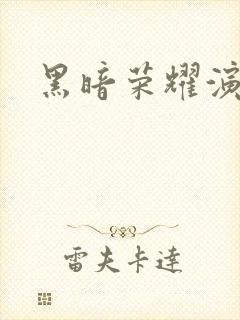 黑暗荣耀演
雷夫卡達